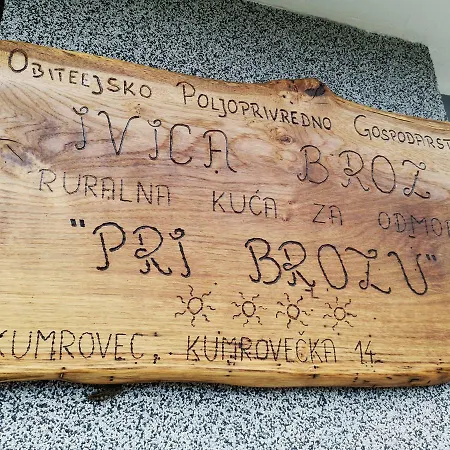 OBITELJSKO POLJOPRIVREDNO GOSPODARST
IVICA BROZ
RURALNA KUĆA ZA ODMO
"PRI BROZU"
KUMROVEC, KUMROVEČKA 14